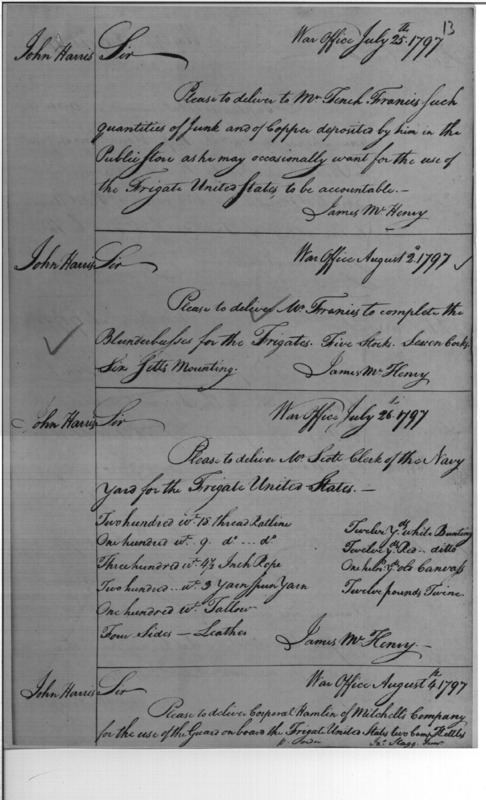 13
War Office July 25th 1797
John Harris Sir
Please to deliver to Mr Tench Francis such
quantities of Junk and of Copper deposited by him in the
Public Store as he may occasionally want for the use of
the Frigate United States, to be accountable.—
James McHenry
John Harris Sir War Office August 2d 1797
Please to deliver Mr Francis to complete the
Blunderbusses for the Frigates. Five Stocks. Seven Cocks.
Six Setts Mounting. James McHenry
John Harris Sir War Office, July 26th 1797
Please to deliver Mr Scott Clerk of the Navy
Yard for the Frigate United States.—
Two hundred wt 15 thread Ratline Twelve yds white Bunting
One hundred wt. 9 do do Twelve yds Red.. ditto
Three hundred wt 4½ Inch Rope One hund yds old Canvass
Two hundred.. wt 3 Yarn spun Yarn Twelve pounds Twine
One hundred wt Tallow
Four Sides — Leather James McHenry—
John Harris Sir War Office August 4th 1797
Please to deliver Corporal Hamlen of Mitchells Company
for the use of the Guard on board the Frigate United States two Camp Kettles
p. order Jno Stagg Junr